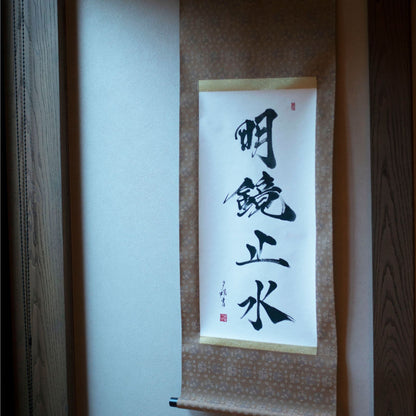 明鏡止水